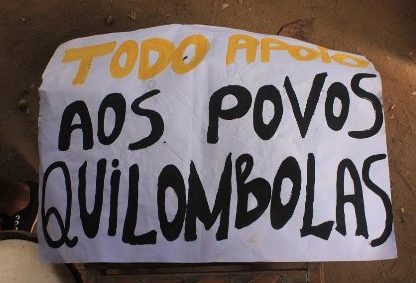 TODO APOIO
AOS POVOS
QUILOMBOLAS